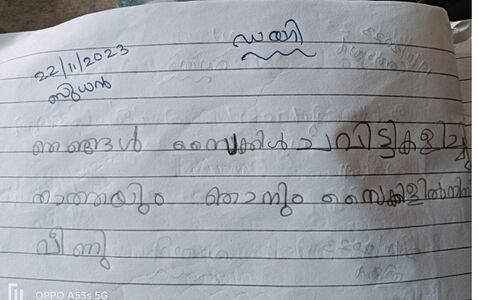 ഡയറി
22/11/2023
ബുധൻ
ഞങ്ങൾ സൈക്കിൾ ചവിട്ടികളിച്ചു
താത്തയും ഞാനും സൈക്കിളിൽനിന്ന്
വീണു
OPPO A53s 5G